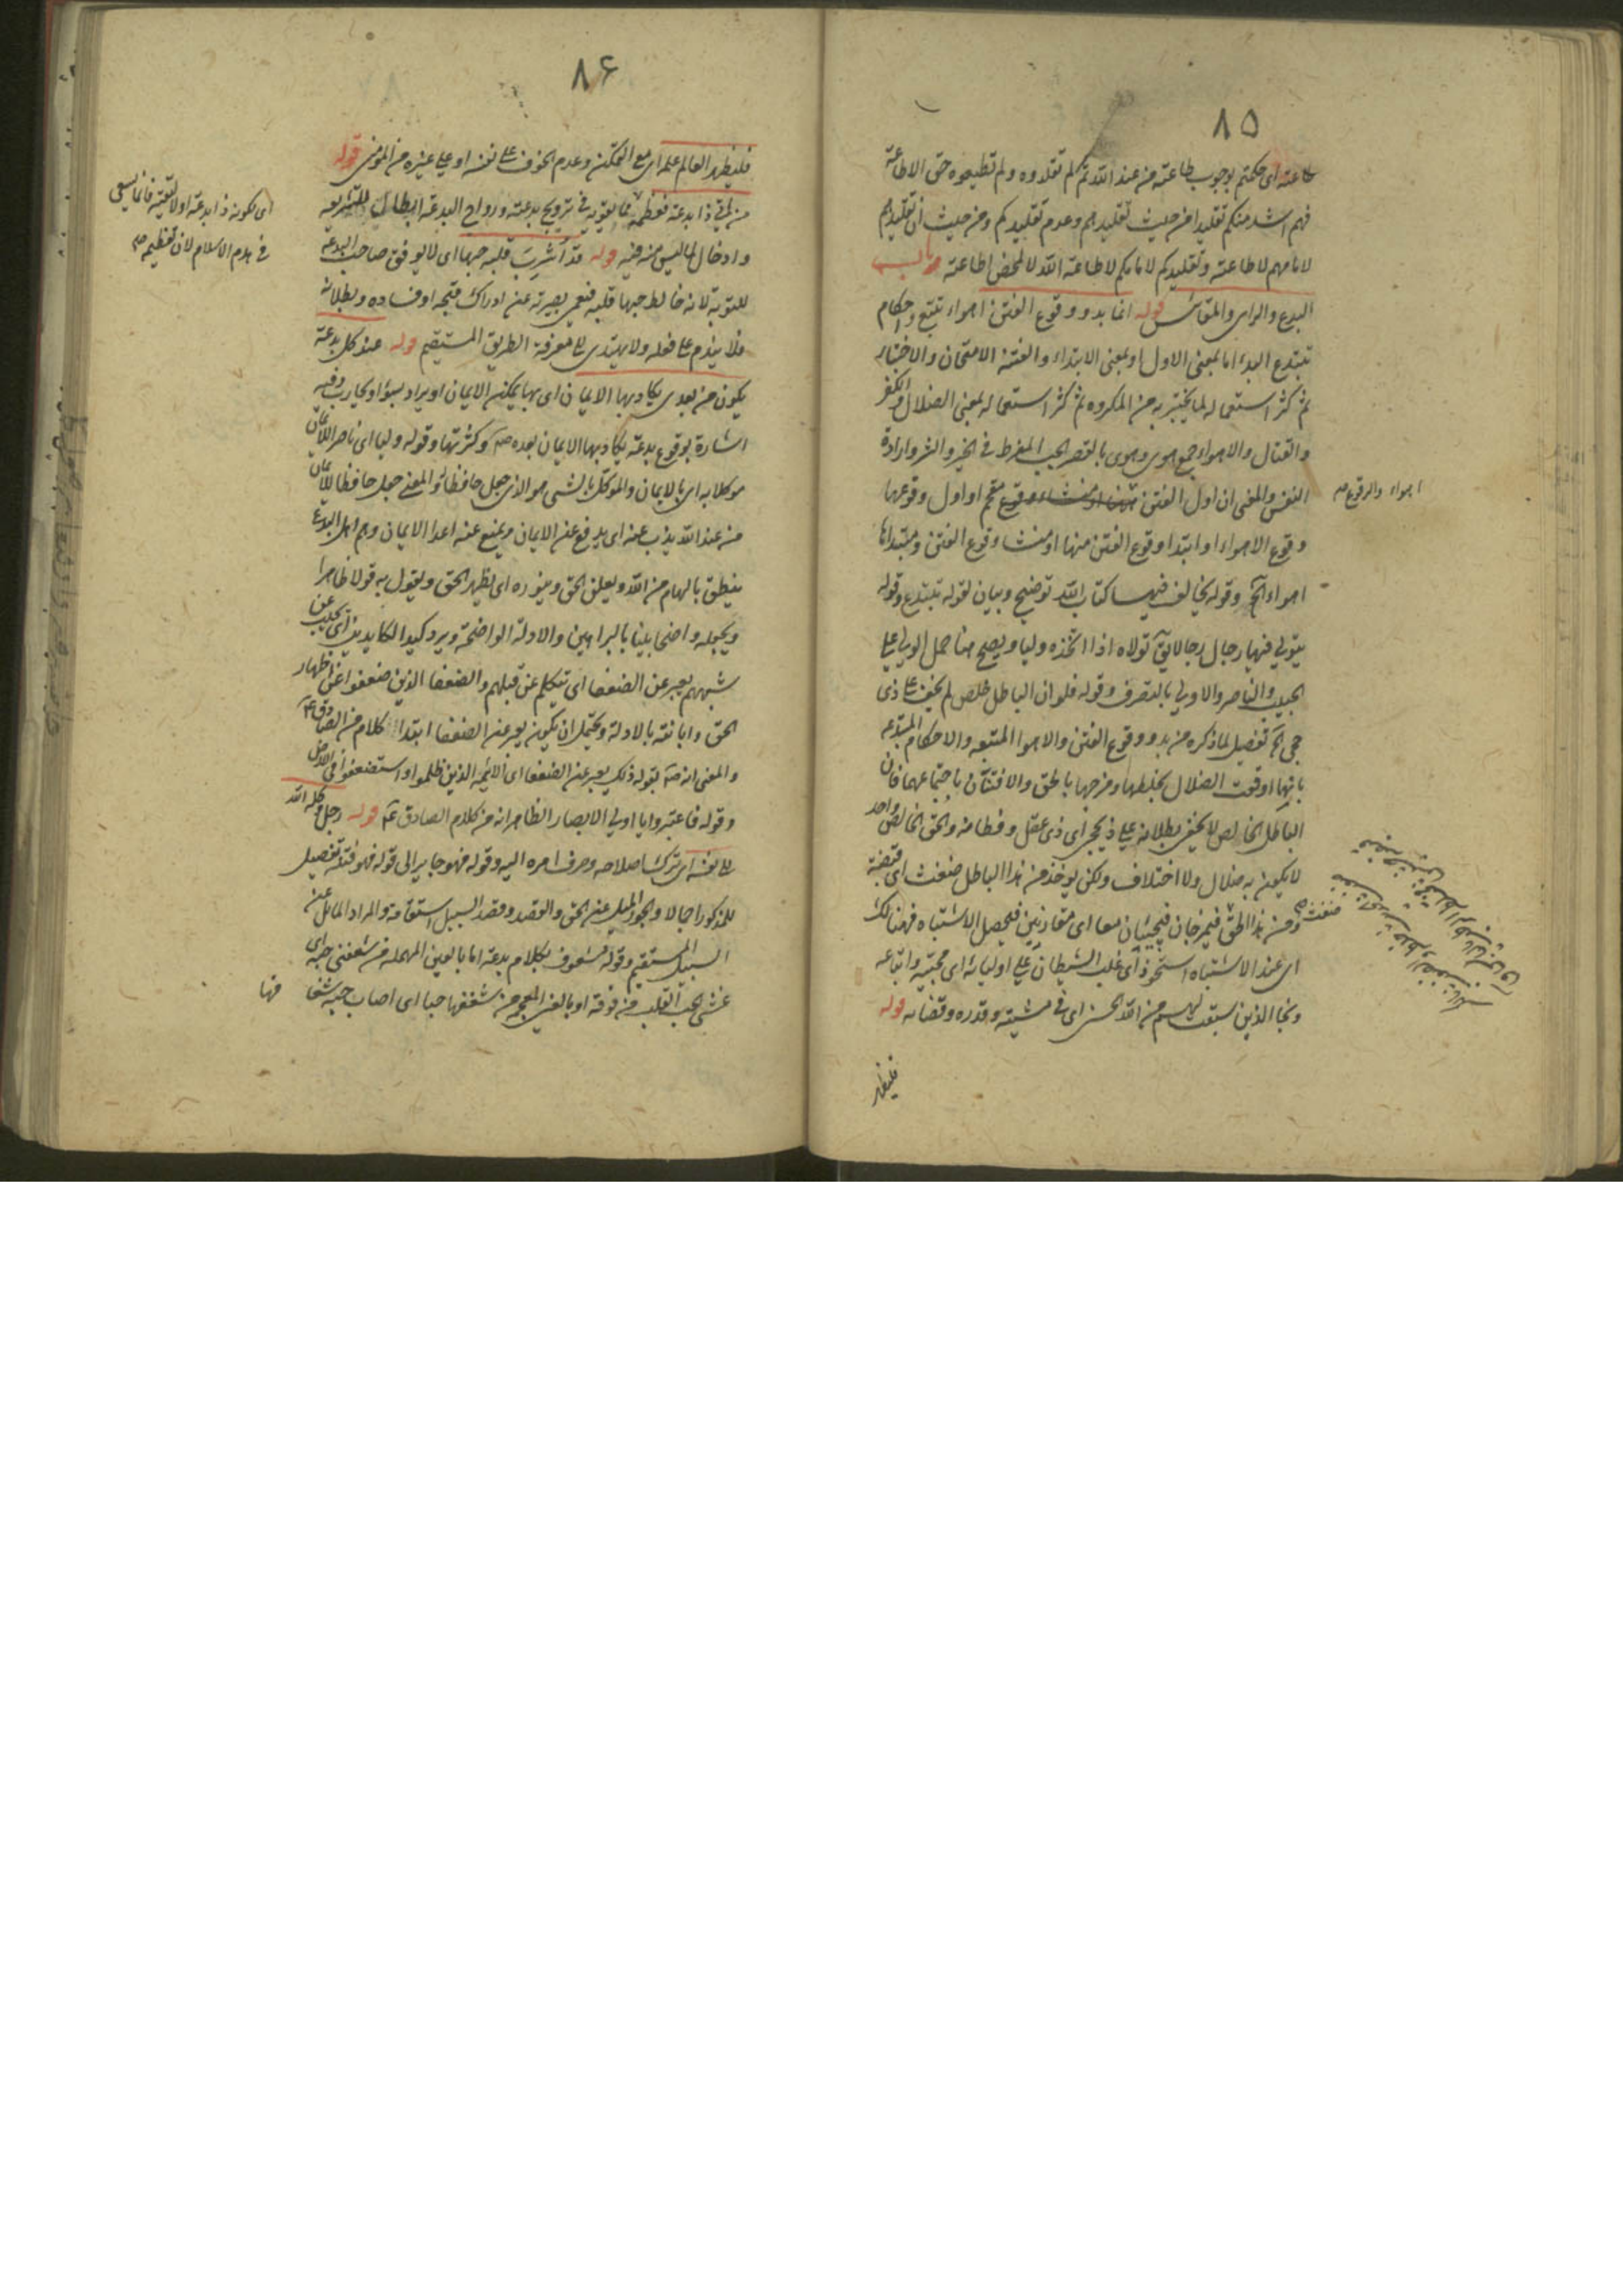 ٨٥
طاعته اى حكمتم بوجوب طاعته من عند الله ثم لم تقلدوه ولم تطيعوه حق الاطاعة
فهم اشد منكم تقليدا من حيث تقليدهم وعدم تقليدكم ومن حيث ان تقليدهم
لامامهم لاطاعته وتقليدكم لامامكم لاطاعة الله لا لمحض اطاعته باب
البدع والراى والمقائيس قوله انما بدو وقوع الفتن اهواء تتبع واحكام
تبتدع البدء اما بمعنى الاول او بمعنى الابتداء والفتنة الامتحان والاختبار
ثم كثر استعماله لما يختبر به من المكروه ثم كثر استعماله بمعنى الضلال والكفر
والقتال والاهواء جمع هوى وهوى بالقصر الحب المفرط فى الخير والشر وارادة
النفس والمعنى ان اول الفتن مقحم او اول وقوعها
اهواء والوقوع صح
وقوع الاهواء او ابتداء وقوع الفتن منها او منشاء وقوع الفتن ومبتداها
اهواء الخ وقوله يخالف فيها كتاب الله توضيح وبيان لقوله تبتدع وقوله
يتولى فيها رجال رجالا يق تولاه اذا اتخذه وليا ويصح هنا حمل الولى على
الحبيب والناصر والاولى بالتصرف وقوله فلو ان الباطل خلص لم يخف على ذى
حجى الخ تفصيل لما ذكره من بدو وقوع الفتن والاهوا المتبعه والاحكام المبتدعه
بانها اوقعت الضلال بخلطها ومزجها بالحق والافتتان باجتماعهما فان
الباطل الخالص لا يخفى بطلانه على ذى حجى اى ذى عقل وفطانه والحق الخالص واحد
لا يكون به ضلال ولا اختلاف ولكن يوخذ من هذا الباطل ضغث اى قبضة
ومن هذا الحق ضغث صح فيمزجان فيجيئان معا اى مقارنين فيحصل الاشتباه فهنالك
اى عند الاشتباه استحوذ اى غلب الشيطان على اوليائه اى محبيه واتباعه
ونجا الذين سبقت لهم من الله الحسنى اى فى مشيته وقدره وقضائه قوله
فليظهر
٨٦
فليظهر العالم علمه اى مع التمكن وعدم الخوف على نفسه او على غيره من المومنين قوله
من اتى ذا بدعة فعظمه مما يقويه فى ترويج بدعته ورواج البدعة ابطال للشريعه
اى لكونه ذا بدعة او لا لتقيه فانما يسعى
فى هدم الاسلام لان تعظيمه صح
وادخال لما ليس منه فيه قوله قد اشرب قلبه حبها اى لا يوفق صاحب البدعه
للتوبة لانه خالط حبها قلبه فعمى بصيرته عن ادراك قبحه او فساده وبطلانه
فلا يندم على فعله ولا يهتدى الى معرفة الطريق المستقيم قوله عند كل بدعة
يكون من بعدى يكاد بها الايمان اى بها يمكن الايمان او يراد بسوء او يحارب وفيه
اشارة بوقوع بدعة يكاد بها الايمان بعده ص وكثرتها وقوله وليا اى ناصرا للايمان
موكلا به اى بالايمان والموكل بالشى هو الذى جعل حافظا له والمعنى جعل حافظا للايمان
من عند الله يذب عنه اى يدفع عن الايمان ويمنع عنه اعدا الايمان وهم اهل البدع
ينطق بالهام من الله ويعلن الحق وينوره اى يظهر الحق ويقول به قولا ظاهرا
ويجعله واضحا بينا بالبراهين والادلة الواضحة ويرد كيد الكايدين اى يجيب عن
شبههم يعبر عن الضعفا اى يتكلم عن قبلهم والضعفا الذين ضعفوا عن اظهار
الحق وابانته بالادلة ويحتمل ان يكون يعبر عن الضعفا ابتداء كلام من الصادق ع
والمعنى انه ص بقوله ذلك يعبر عن الضعفا اى الائمه الذين ظلموا واستضعفوا فى الارض
وقوله فاعتبروا يا اولى الابصار الظاهر انه من كلام الصادق ع قوله رجل وكله الله
الى نفسه اى ترك اصلاحه وصرف امره اليه وقوله فهو جاير الى قوله فهو فتنة تفصيل
للمذكور اجمالا والجور الميل عن الحق والقصد وقصد السبيل استقامة والمراد المائل عن
السبيل المستقيم وقوله مشعوف بكلام بدعة اما بالعين المهمله من شعفنى حبه اى
غشى الحب القلب من فوقه او بالغين المعجمه من شغفها حبا اى اصاب حبه شغا فها